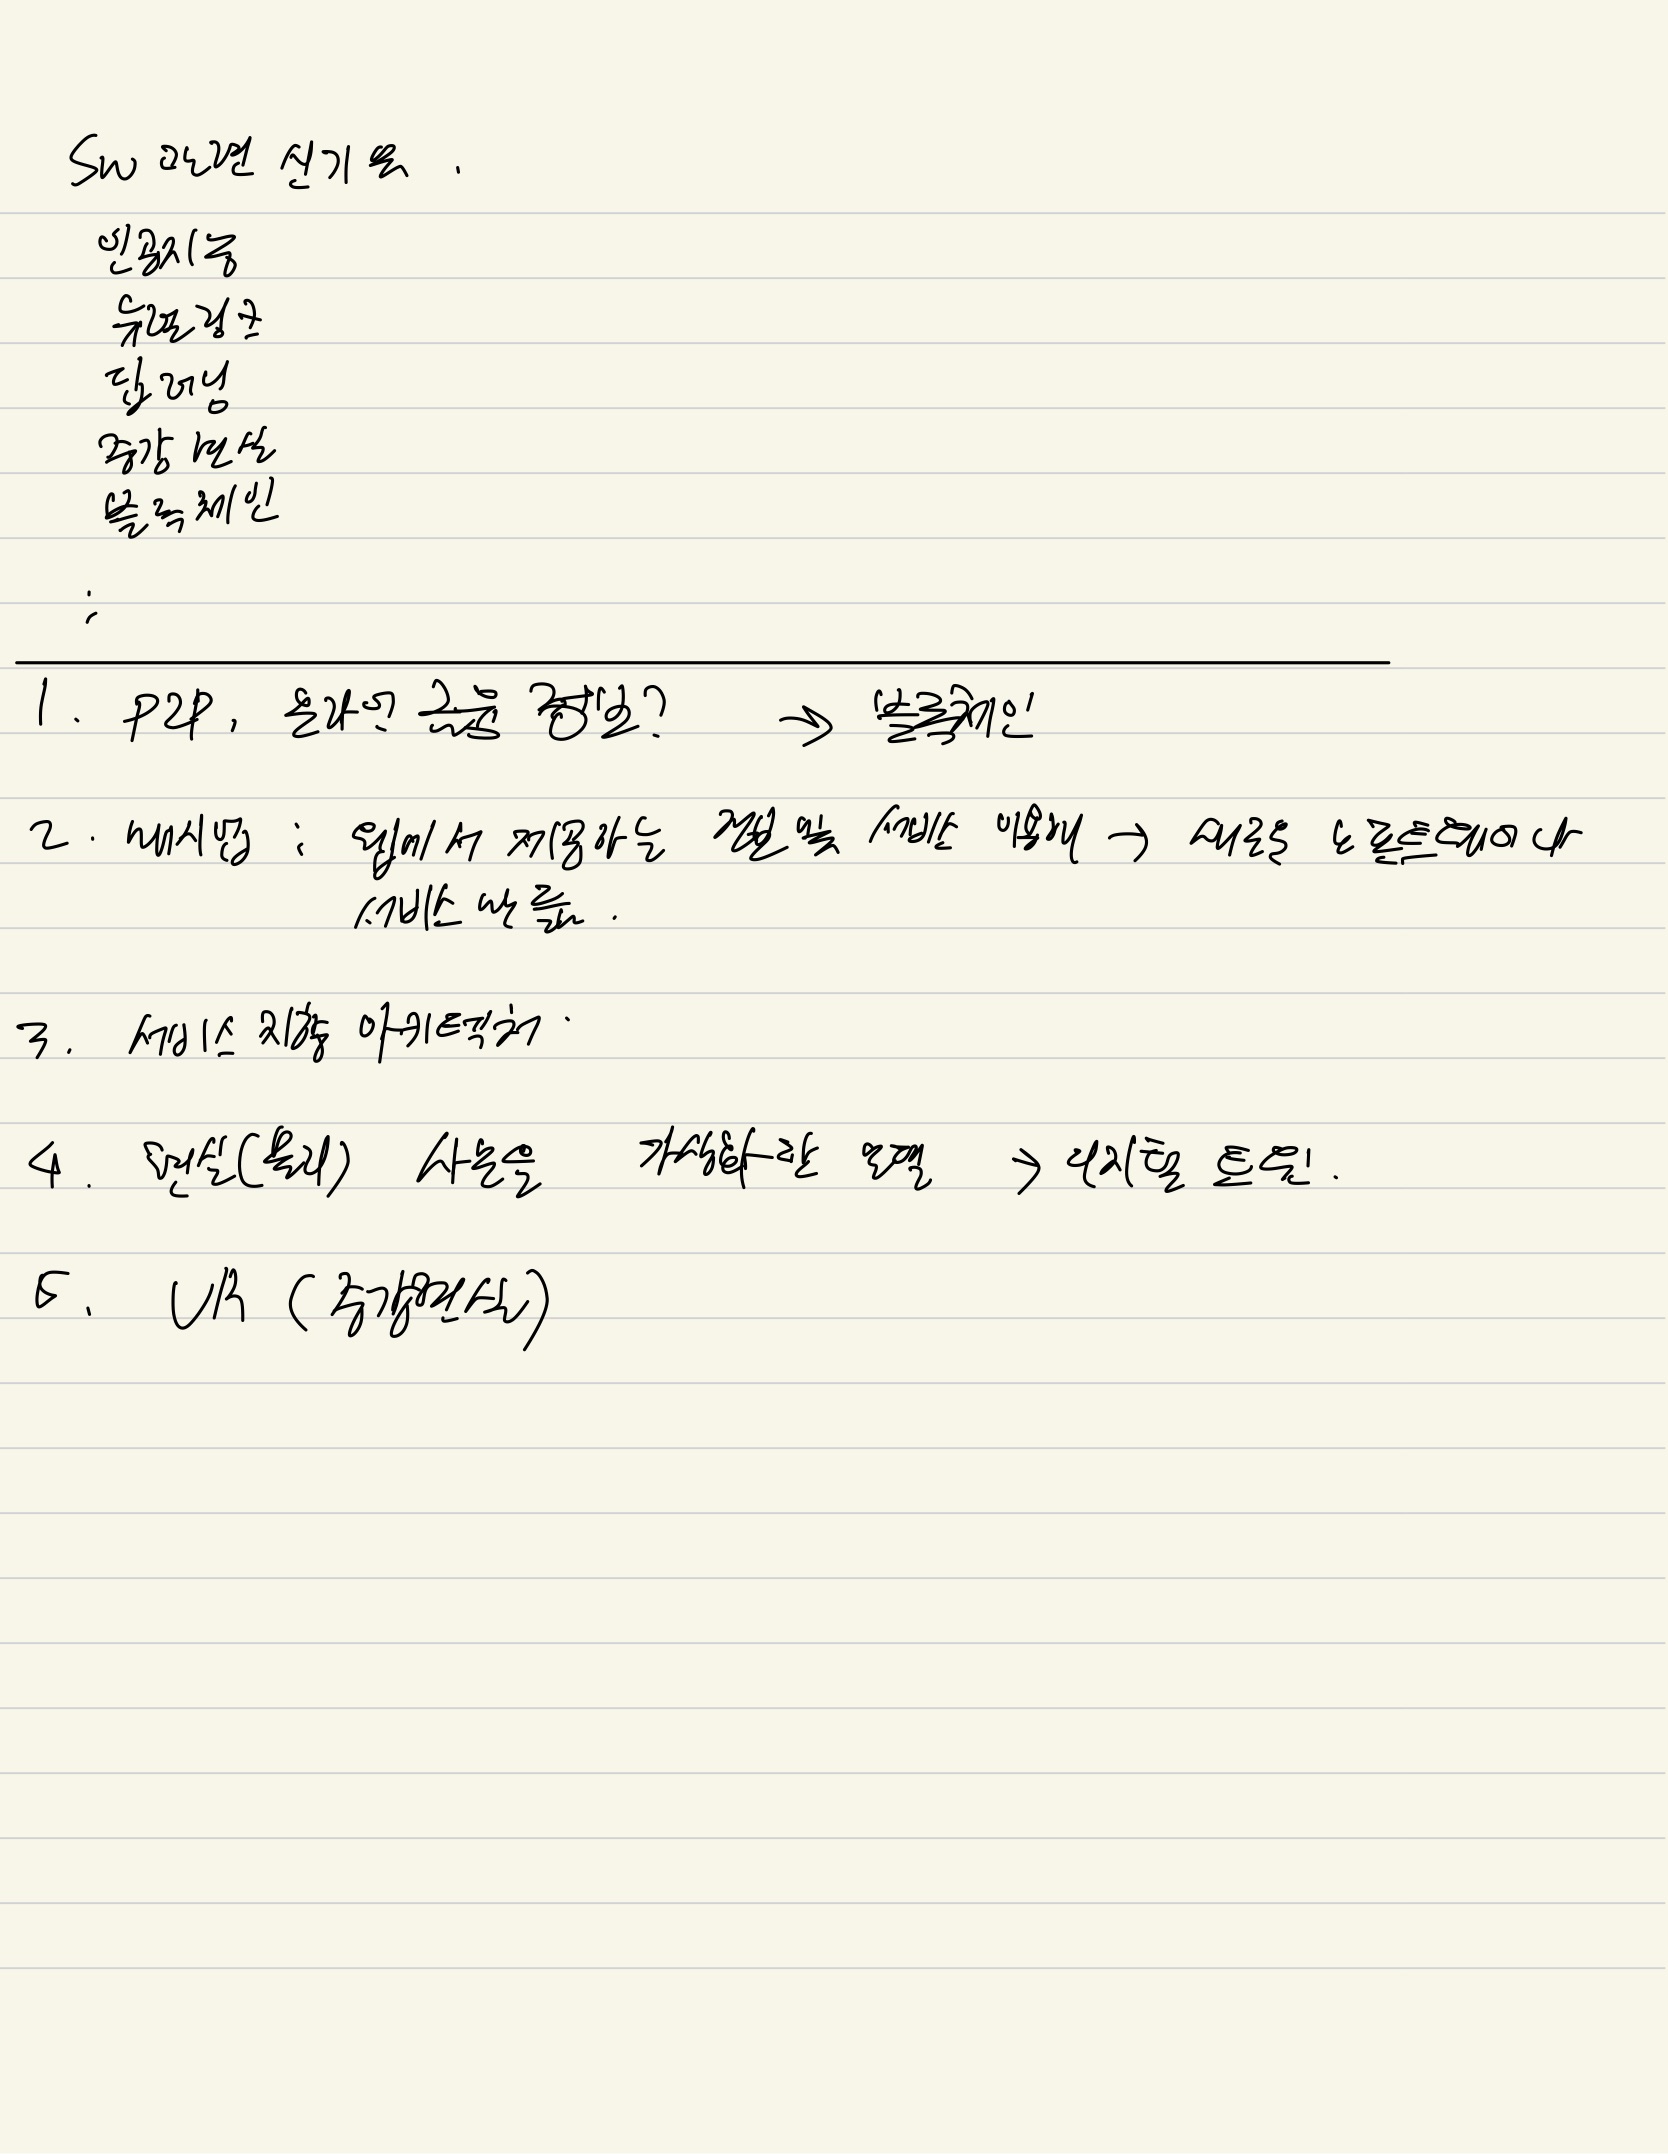 SW 관련 신기술.
인공지능
뉴럴링크
딥러닝
증강현실
블록체인
:
1. P2P, 온라인 금융 정보? → 블록체인
2. 매시업 : 웹에서 제공하는 정보 및 서비스 이용해 → 새로운 소프트웨어나
서비스 만듦.
3. 서비스 지향 아키텍처.
4. 현실(물리) 사물을 가상화한 모델 → 디지털 트윈.
5. VR (증강현실)